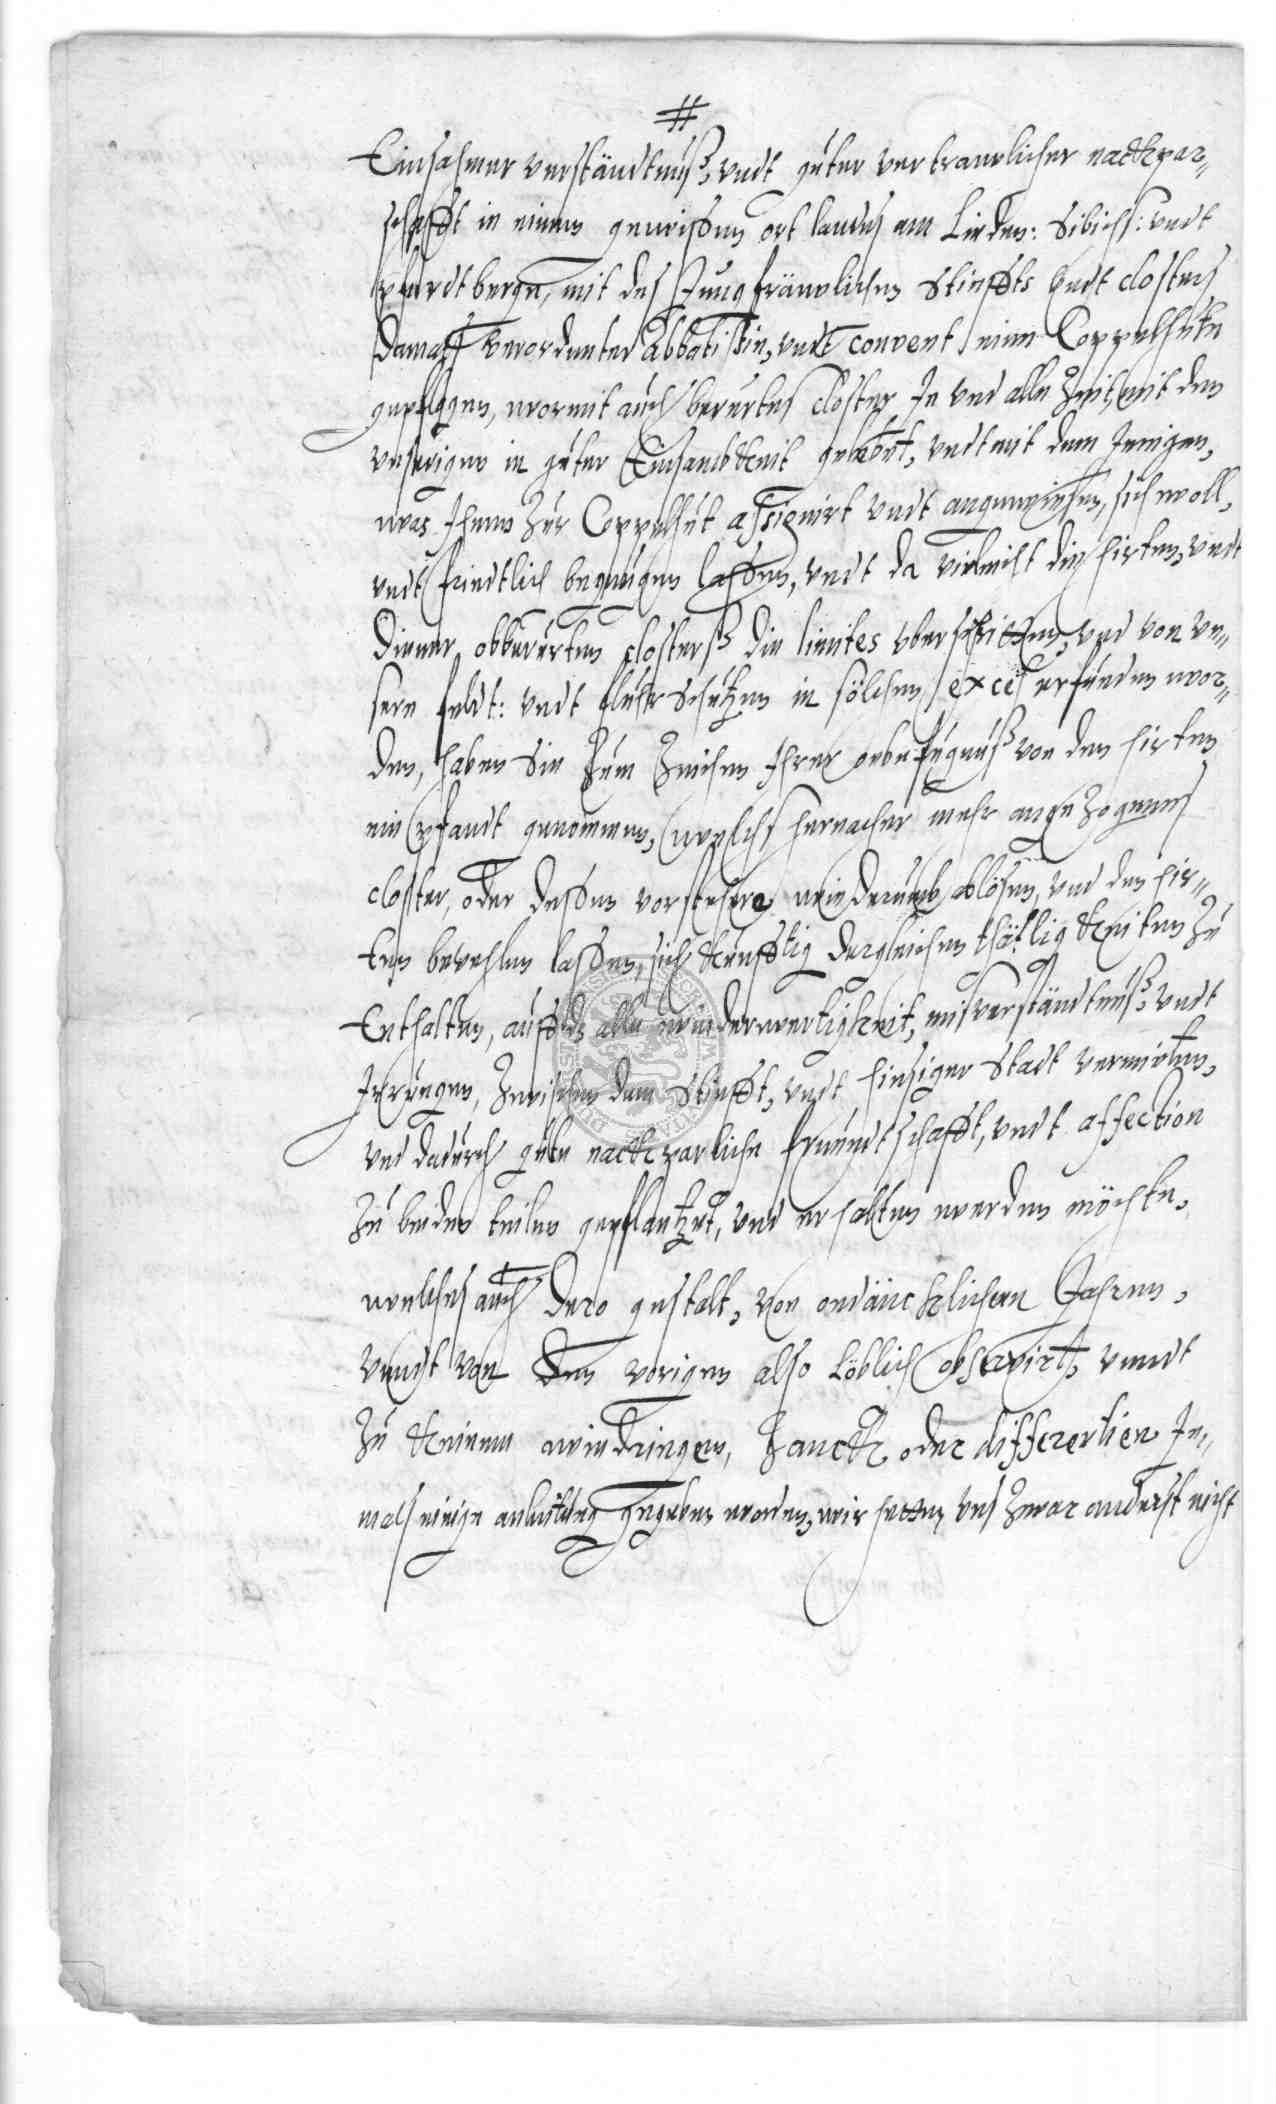 #
Einsahmer verständtnuß, undt guter vertrauwlicher nachpar„
schafft in einem gewißen ort landes am Linden: Sibichs: undt
pferdtberge, mit des Jungfräuwlichen Stieffts undt closters
damals verordenter Abbatißin, undt convent eine Coppelhute
gepflogen, wormit auch berurtes closter Je und alle Zeit, mit den
unserigen in guter Einsambkeit gelebet, undt mit dem Jenigen,
was Jhnen zur Coppelhut assignirt undt angewiesen, sich woll,
undt friedtlich begnugen laßen, undt da vieleicht die hirten, undt
Diener obberurten closterß die limites uberschritten, und von un„
sern feldt: undt fluhr Schutzen in solchem exceß erfunden wor„
den, haben Sie zum Zeichen Jhrer unbefugnuß von den hirten
ein pfandt genommen, welchs hernacher mehr angezogenes
closter, oder deßen vorstehere wiederumb ablösen, und den hir„
ten bevehlen laßen, sich kunfftig dergleichen thätligkeiten zu
Enthalten, auff das alle wiederwertigkeit, misverständtnuß, undt
Jrrungen, zwischen dem Stiefft, undt hiesiger Stadt vermieden,
und dadurch gute nachparliche freundtschafft, undt affection
zu beiden teilen gepflantzet, und erhalten werden möchte,
welches auch dero gestalt, von undäncklichen Jahren,
undt von den vorigen also Löblich observirt, unndt
zu keinem wiedringen, Zanck oder differentien Je„
mals einige anleitung gegeben worden, wir hetten uns zwar anderst nicht